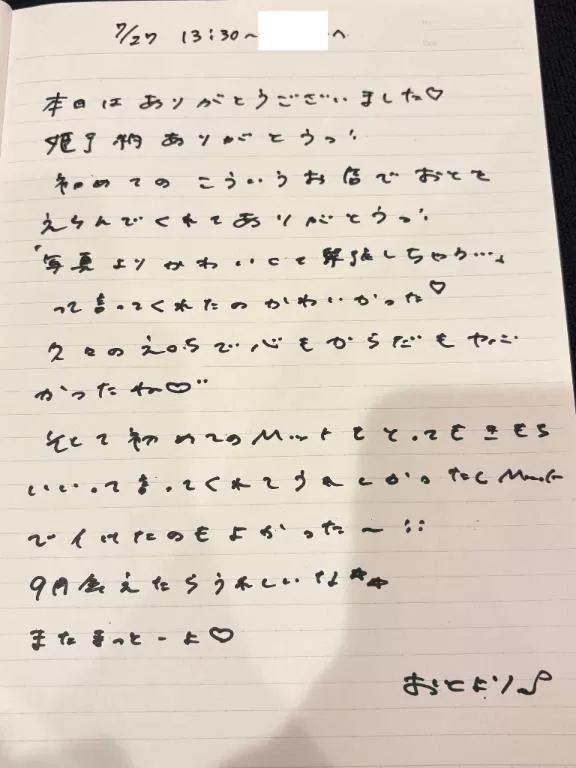 7/27 13:30〜 へ
本日はありがとうございました♡
姫予約ありがとうっ!
初めてのこういうお店でおとを
えらんでくれてありがとうっ!
「写真よりかわいくて緊張しちゃう…」
って言ってくれたのかわいかった♡
久々のえちちで心もからだもやばか
かったね♡
そして初めてのMットもとってもきもち
いいって言ってくれてうれしかったしMット
でイけたのもよかった〜!!
9月会えたらうれしいな☆☆
またまっとーよ♡
おとより♪